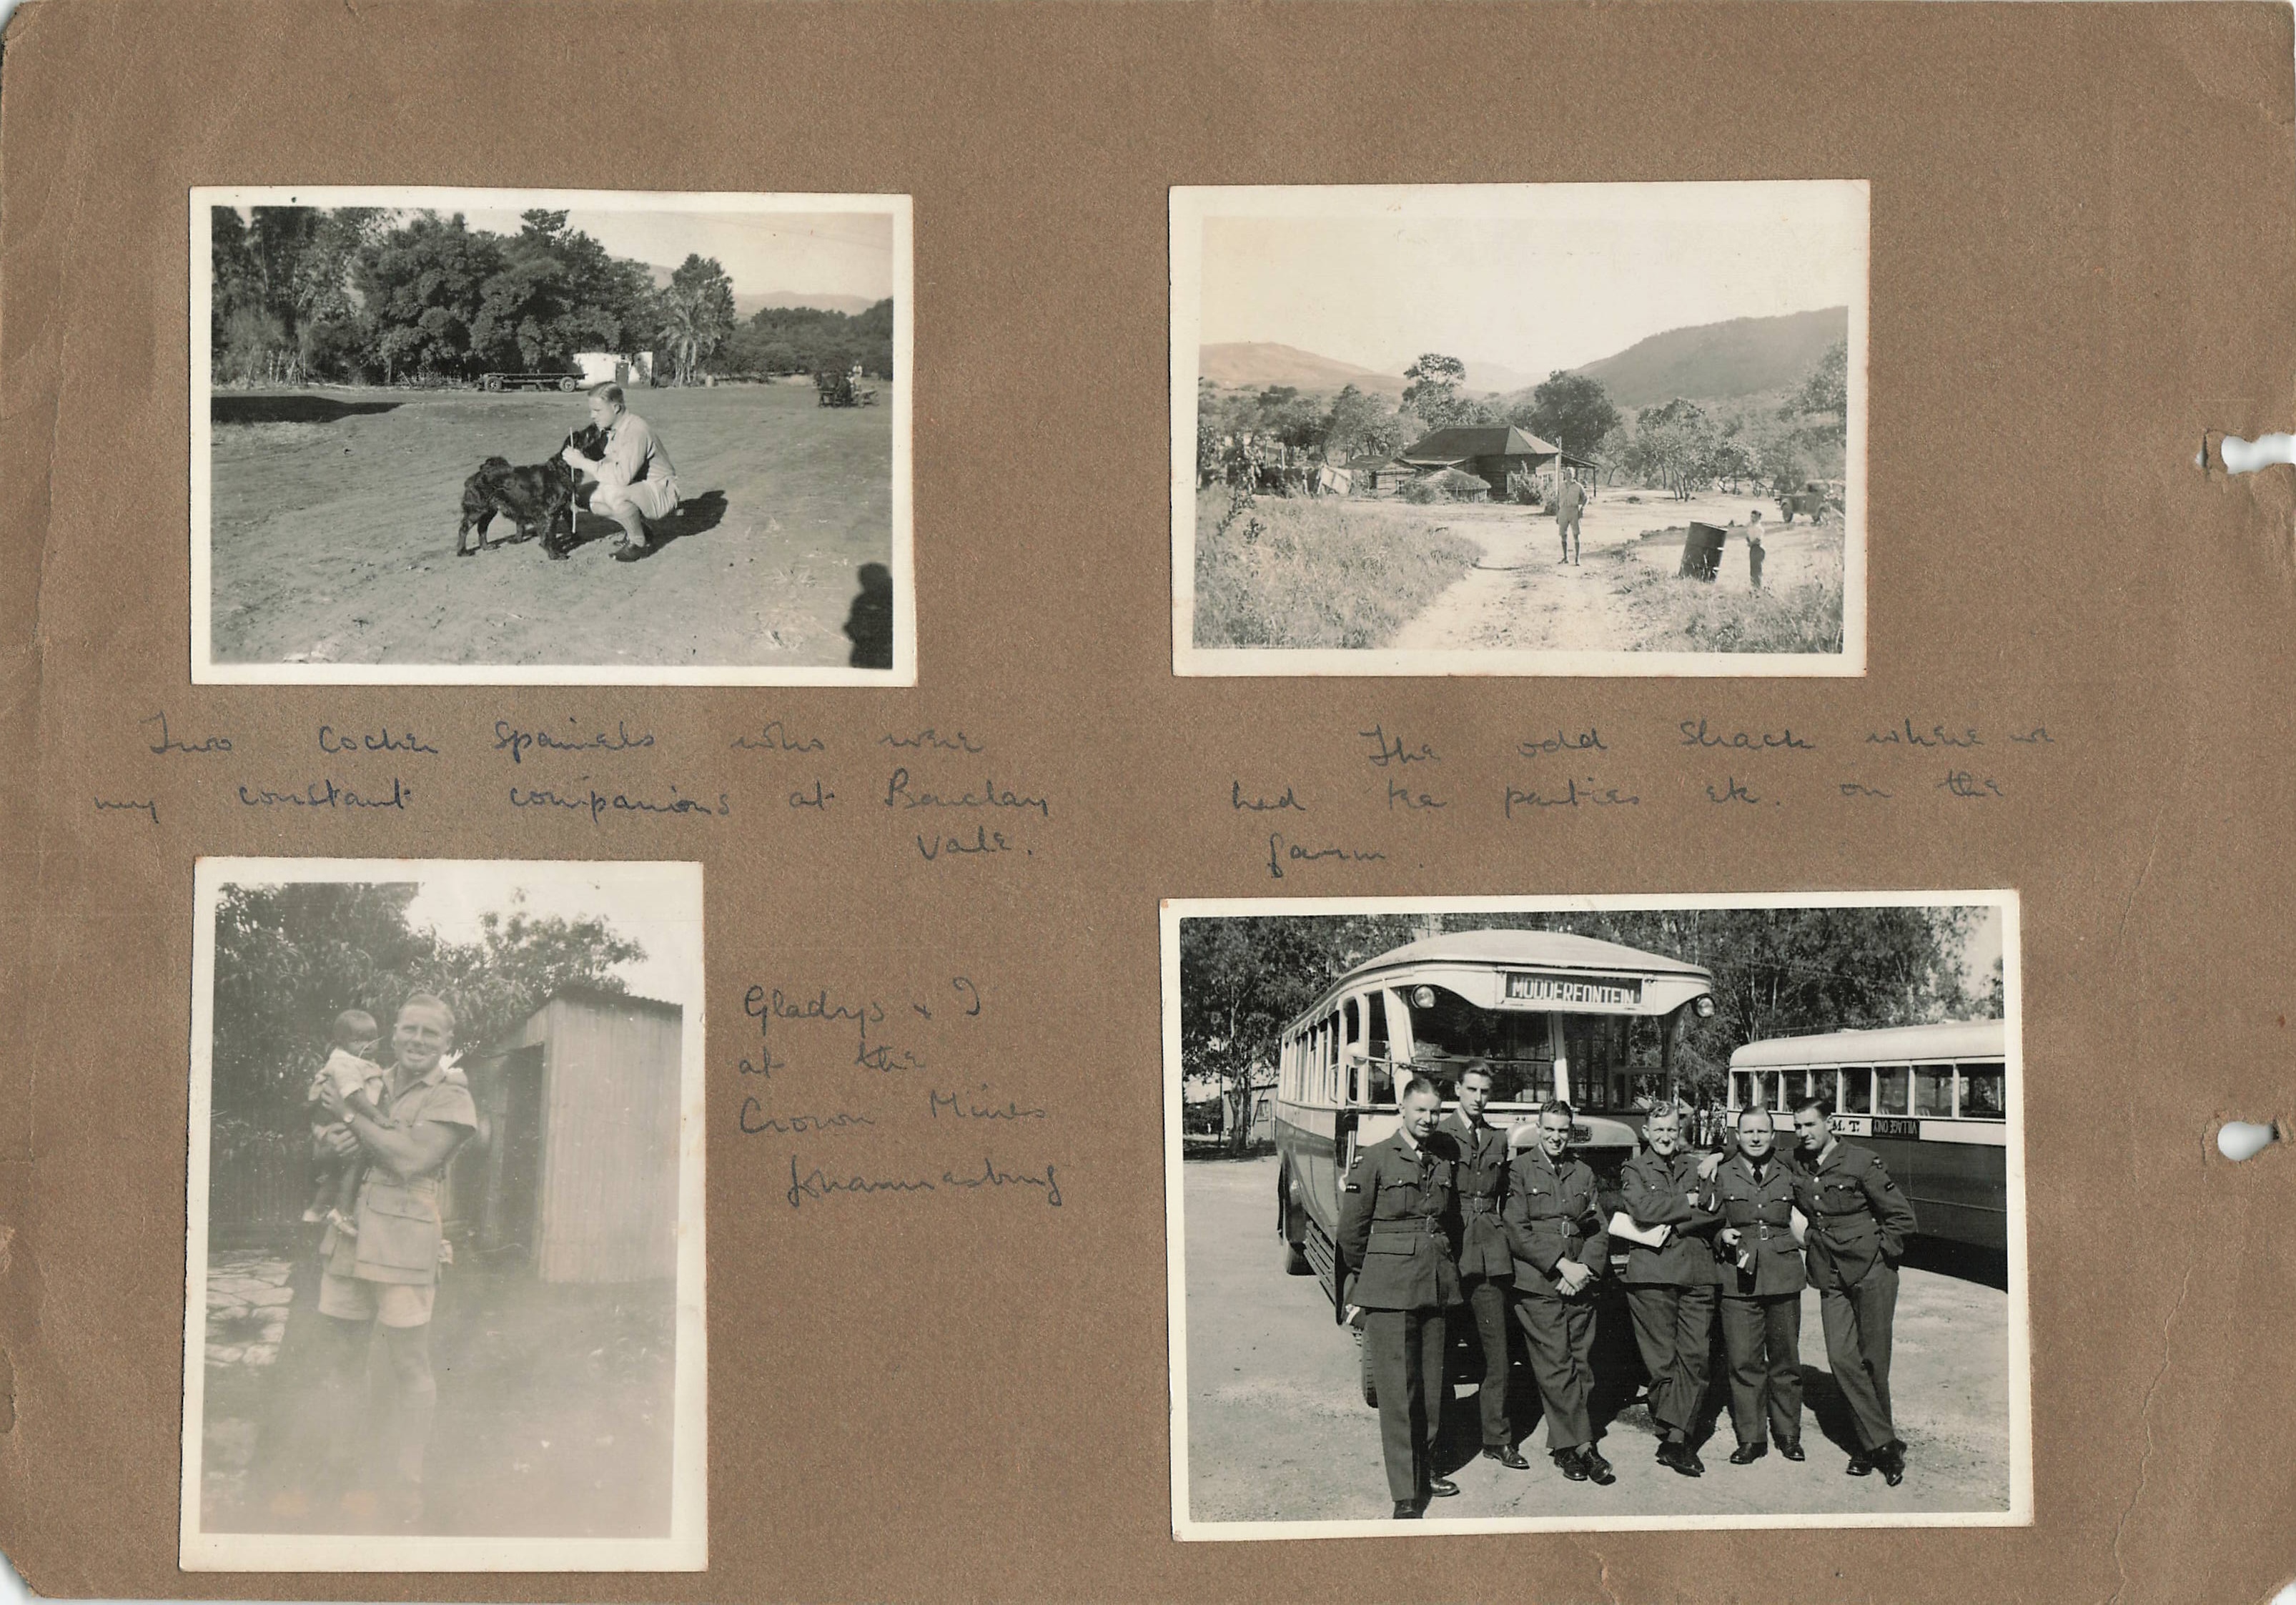 Two Cocker Spaniels who were
my constant companions at Barclay
Vale.
The odd Shack where we
had tea parties etc. on the
farm.
Gladys & I
at the
Crown Mines
Johannesburg
MODDERFONTEIN
M.T. VILLAGE ONLY